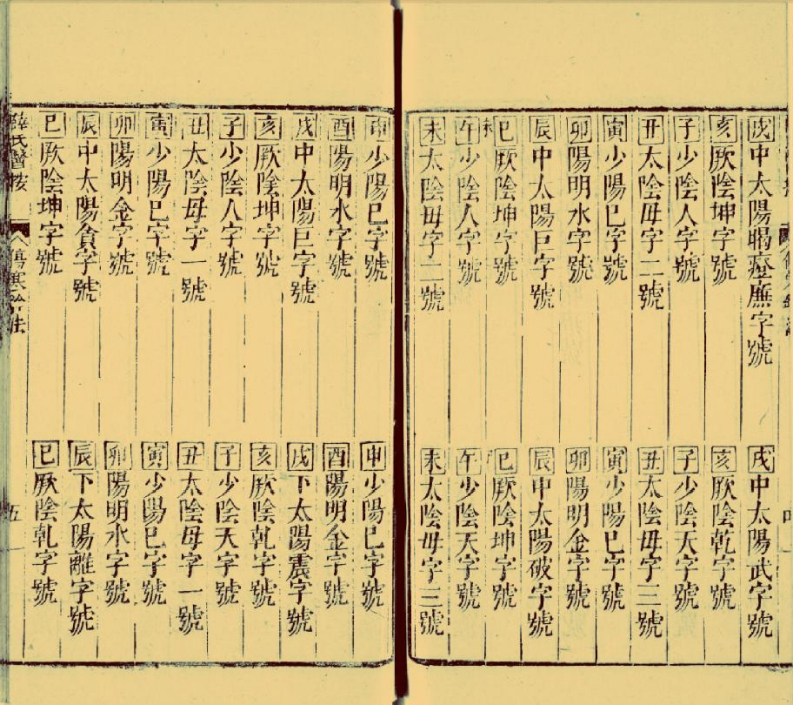 戌中太陽暍痙廡字號 戌中太陽武字號
亥厥陰坤字號 亥厥陰乾字號
子少陰人字號 子少陰天字號
丑太陰毋字二號 丑太陰毋字三號
寅少陽巳字號 寅少陽巳字號
卯陽明水字號 卯陽明金字號
辰中太陽巨字號 辰中太陽破字號
巳厥陰坤字號 巳厥陰坤字號
午少陰人字號 午少陰天字號
未太陰毋字二號 未太陰毋字三號
申少陽巳字號 申少陽巳字號
酉陽明水字號 酉陽明金字號
戌中太陽巨字號 戌下太陽震字號
亥厥陰坤字號 亥厥陰乾字號
子少陰人字號 子少陰天字號
丑太陰毋字一號 丑太陰毋字一號
寅少陽巳字號 寅少陽巳字號
卯陽明金字號 卯陽明水字號
辰中太陽貪字號 辰下太陽離字號
巳厥陰坤字號 巳厥陰乾字號
薛氏醫按 傷寒鈐法 五